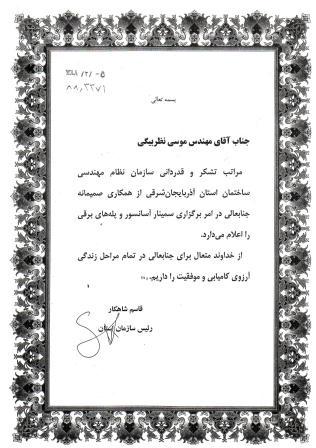 ۸۸,۳۳۷۱
بسمه تعالی
جناب آقای مهندس موسی نظربیگی
مراتب تشکر و قدردانی سازمان نظام مهندسی
ساختمان استان آذربایجان‌شرقی از همکاری صمیمانه
جنابعالی در امر برگزاری سمینار آسانسور و پله‌های برقی
را اعلام می‌دارد.
از خداوند متعال برای جنابعالی در تمام مراحل زندگی
آرزوی کامیابی و موفقیت را داریم.
قاسم شاهکار
رئیس سازمان استان